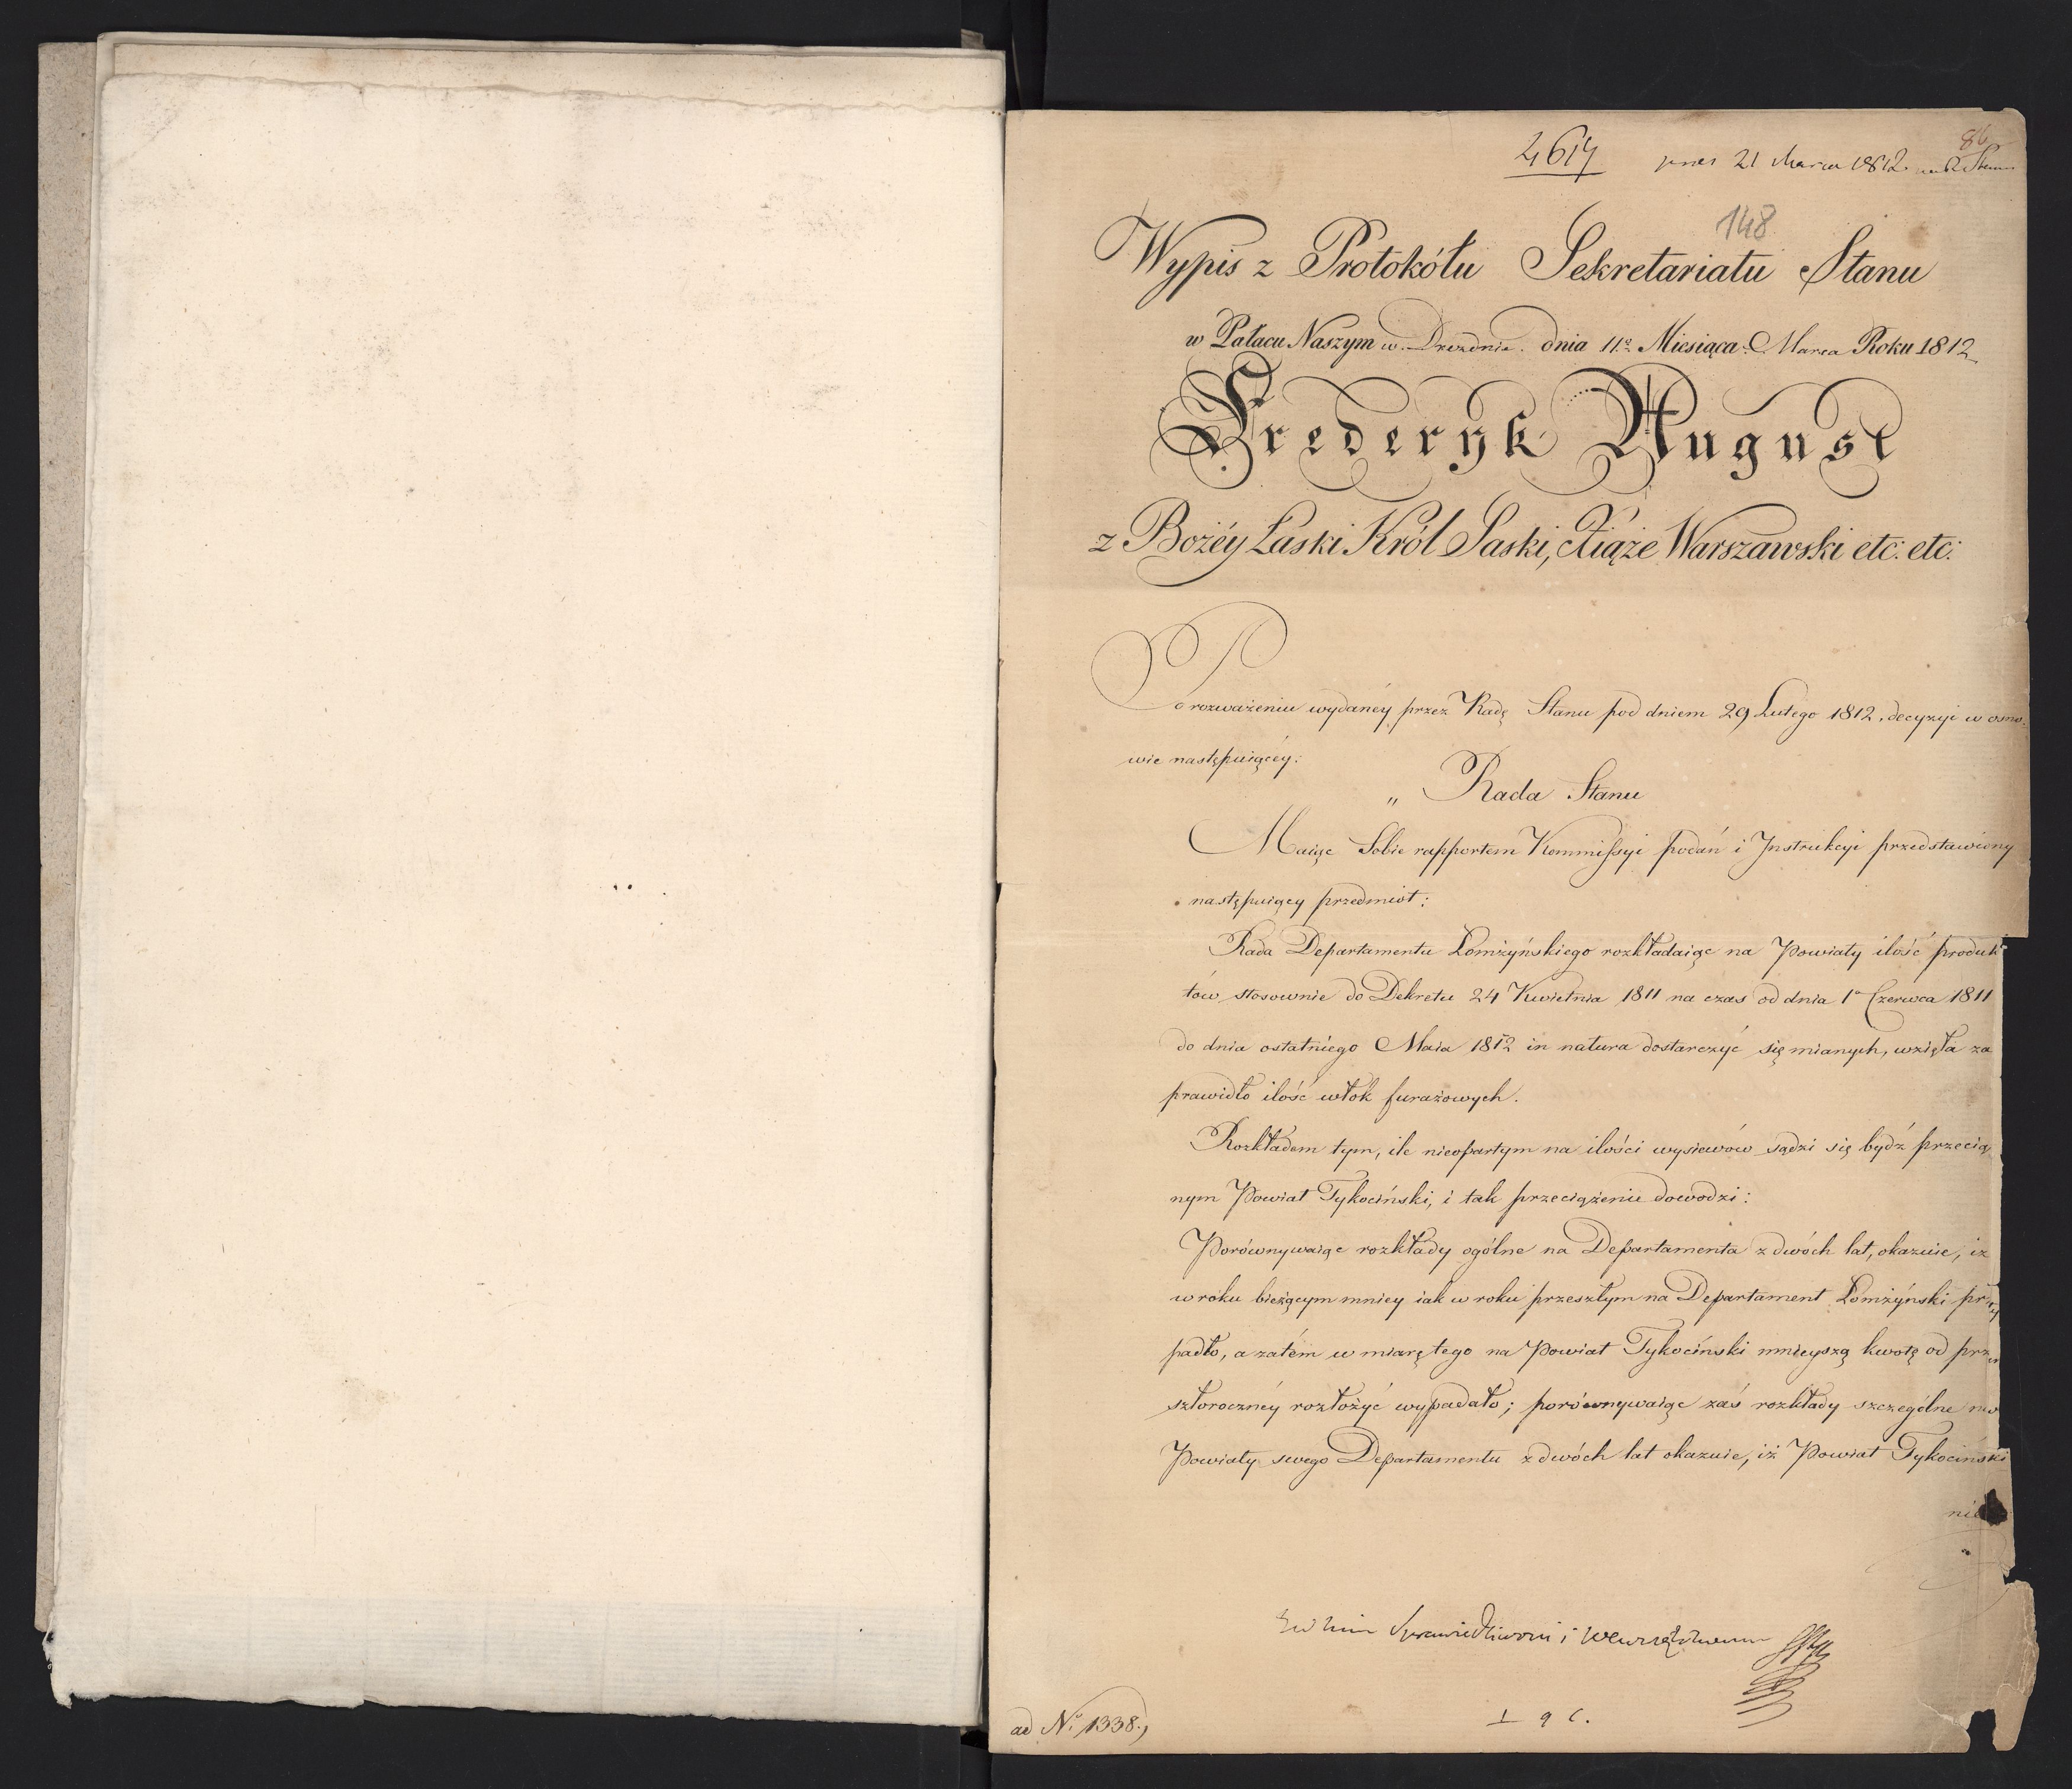 86
4617 21 Marca 1812
148
Wypis z Protokółu Sekretariatu Stanu
w Pałacu Naszym w Dreźdnie. dnia 11.º Miesiąca Marca Roku 1812
Frederyk August
z Bożéy Łaski Król Saski, Xiąże Warszawski etc: etc:
Po rozważeniu wydanéy przez Radę Stanu pod dniem 29 Lutego 1812, decyzyi w osno-
wie następuiącéy:
„ Rada Stanu
Maiąc Sobie rapportem Kommissyi podań i Instrukcyi przedstawiony
następuiący przedmiot:
Rada Departamentu Łomżyńskiego rozkładaiąc na Powiaty ilość produk
tów stosownie do Dekretu 24 Kwietnia 1811 na czas od dnia 1º Czerwca 1811
do dnia ostatniego Maia 1812 in natura dostarczyć się mianych, wzięła za
prawidło ilość włók furażowych.
Rozkładem tym, ile nieopartym na ilości wysiewów sądzi się bydź przecią
nym Powiat Tykociński, i tak przeciążenie dowodzi:
Porównywaiąc rozkłady ogólne na Departamenta z dwóch lat, okazuie, iż
w roku bieżącym mniey iak w roku przeszłym na Departament Łomżyński przy
padło, a zatém w miarę tego na Powiat Tykociński mnieyszą kwotę od prze
szłorocznéy rozłożyć wypadało; porównywaiąc zaś rozkłady szczególne na
Powiaty swego Departamentu z dwóch lat okazuie, iż Powiat Tykociński
nie
Sprawiedliwości i Wewnętrznemu
ad Nº 1338.)